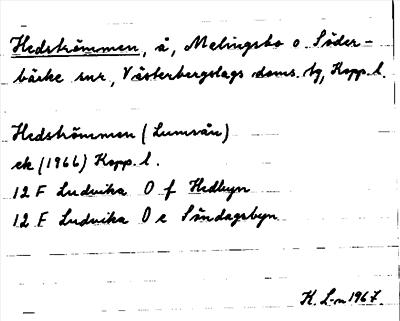 Hedströmmen, å, Malingsbo o Söder-
bärke snr, Västerbergslags doms. tg, Kopp. l.
Hedströmmen (Lumsån)
ek (1966) Kopp. l.
12 F Ludvika 0 f Hedbyn
12 F Ludvika 0 e Söndagsbyn
K. L-n 1967.